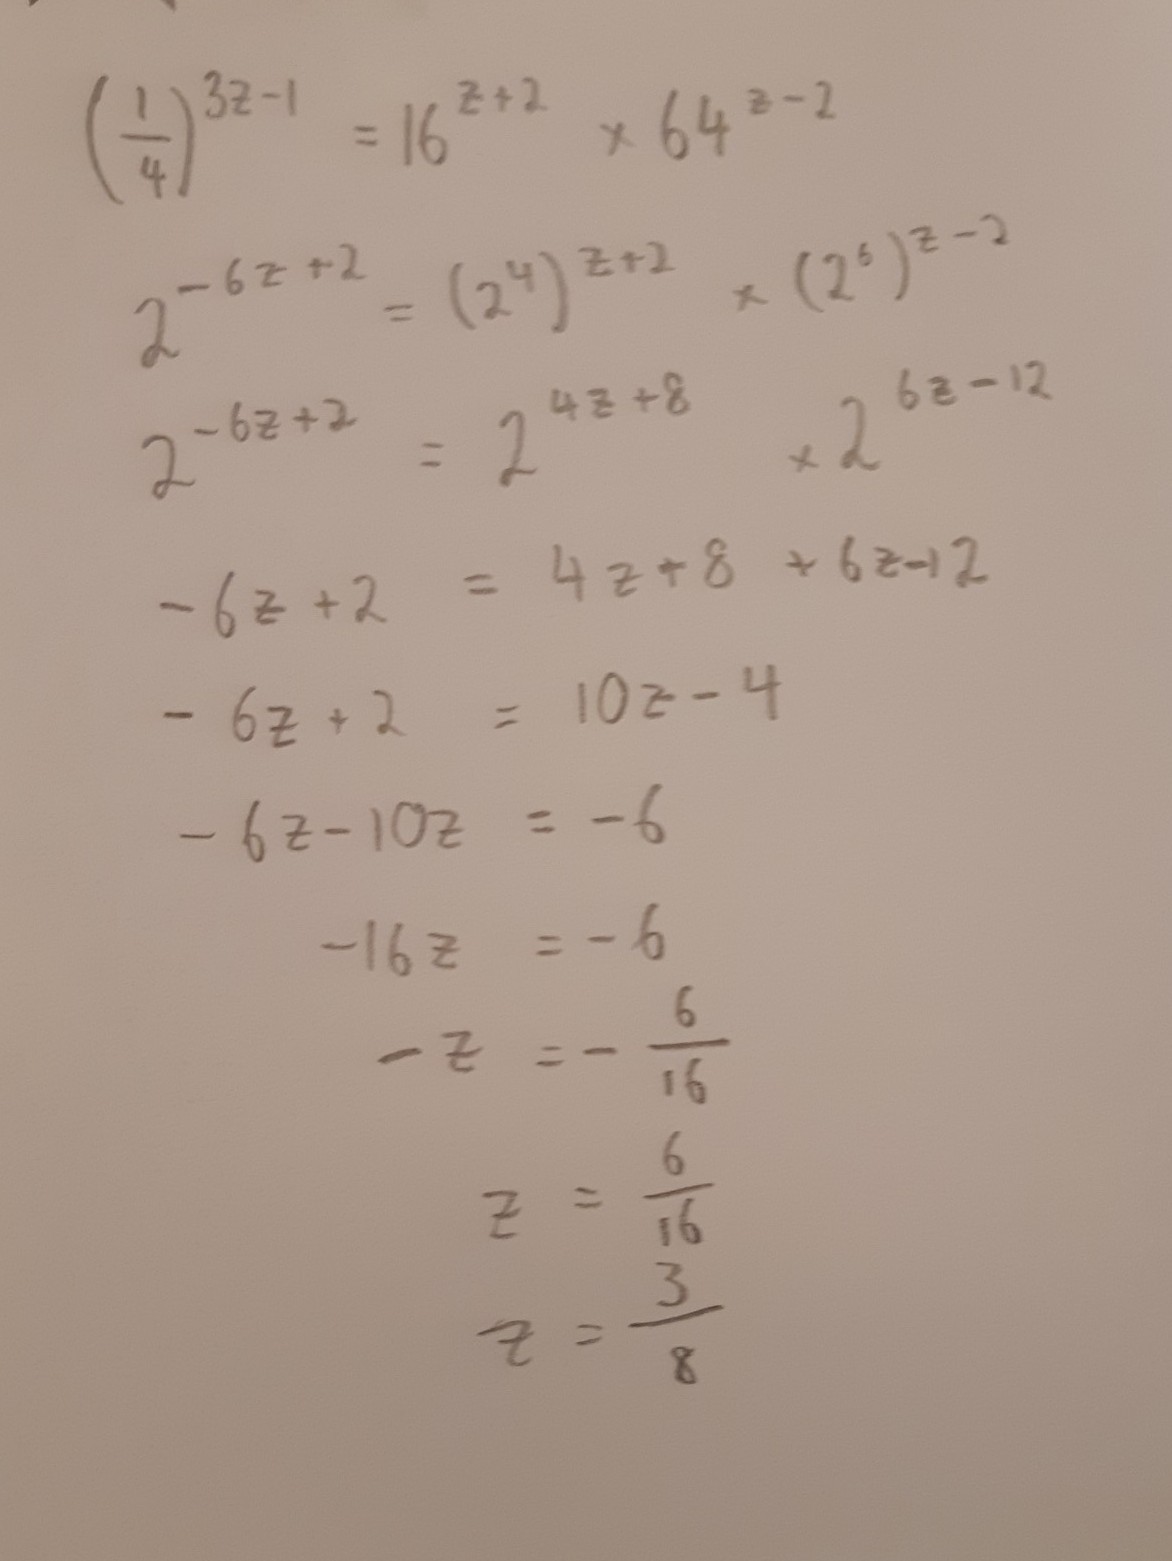 (1/4)^(3z-1) = 16^(z+2) × 64^(z-2)
2^(-6z+2) = (2^4)^(z+2) × (2^6)^(z-2)
2^(-6z+2) = 2^(4z+8) × 2^(6z-12)
-6z+2 = 4z+8 + 6z-12
-6z+2 = 10z-4
-6z-10z = -6
-16z = -6
-z = -6/16
z = 6/16
z = 3/8